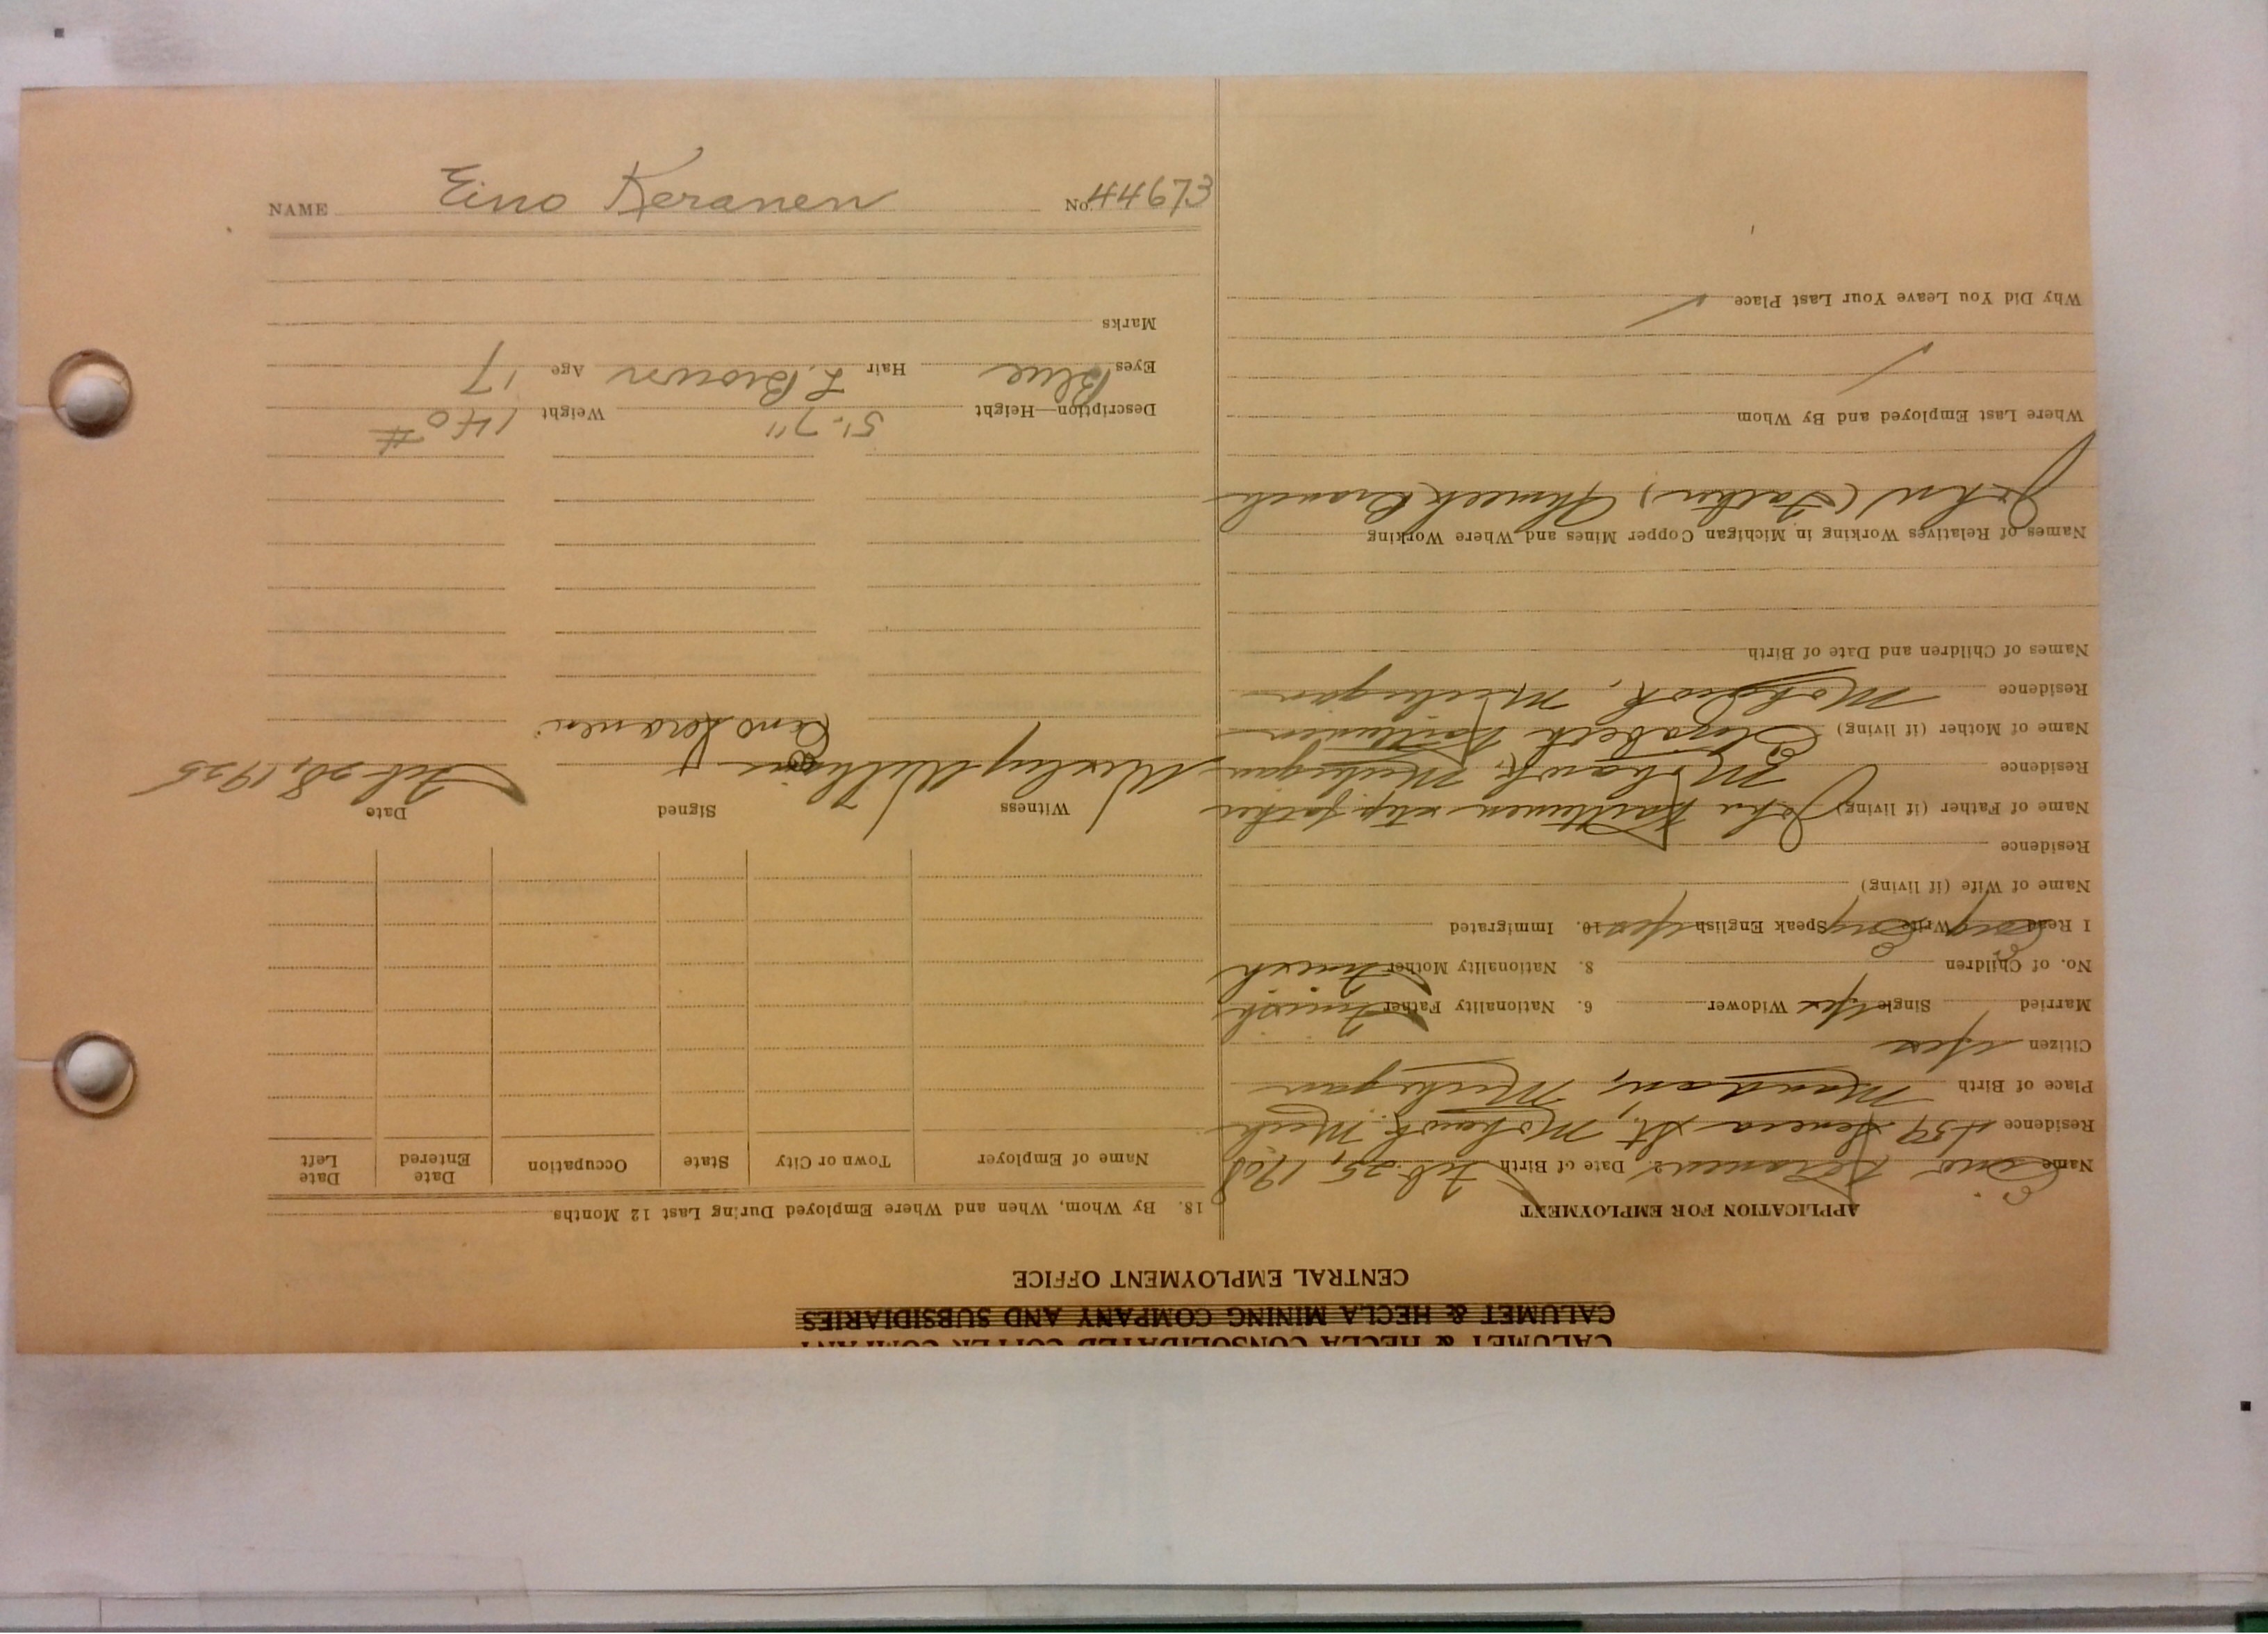 NAME Eino Keranen No. 44673
CALUMET & HECLA CONSOLIDATED COPPER COMPANY
CALUMET & HECLA MINING COMPANY AND SUBSIDIARIES
CENTRAL EMPLOYMENT OFFICE
APPLICATION FOR EMPLOYMENT
Name Eino Keranen 2. Date of Birth Feb. 25, 1908
Residence Seneca St, Mohawk Mich
Place of Birth Mandan, Michigan
Citizen Yes
Married Single Yes Widower 6. Nationality Father Finnish
No. of Children 8. Nationality Mother Finnish
I Read Eng Write Eng Speak English Yes 10. Immigrated
Name of Wife (if living)
Residence
Name of Father (if living) John Kaittunen step father
Residence Mohawk, Michigan
Name of Mother (if living) Elizabeth Kaittunen
Residence Mohawk, Michigan
Names of Children and Date of Birth
Names of Relatives Working in Michigan Copper Mines and Where Working
John (Father) Ahmeek Branch
Where Last Employed and By Whom
Why Did You Leave Your Last Place
18. By Whom, When and Where Employed During Last 12 Months
Name of Employer Town or City State Occupation Date Entered Date Left
Witness Signed Date
Williams Eino Keranen Feb 28, 1925
Description—Height 5'-7" Weight 140 #
Eyes Blue Hair L. Brown Age 17
Marks